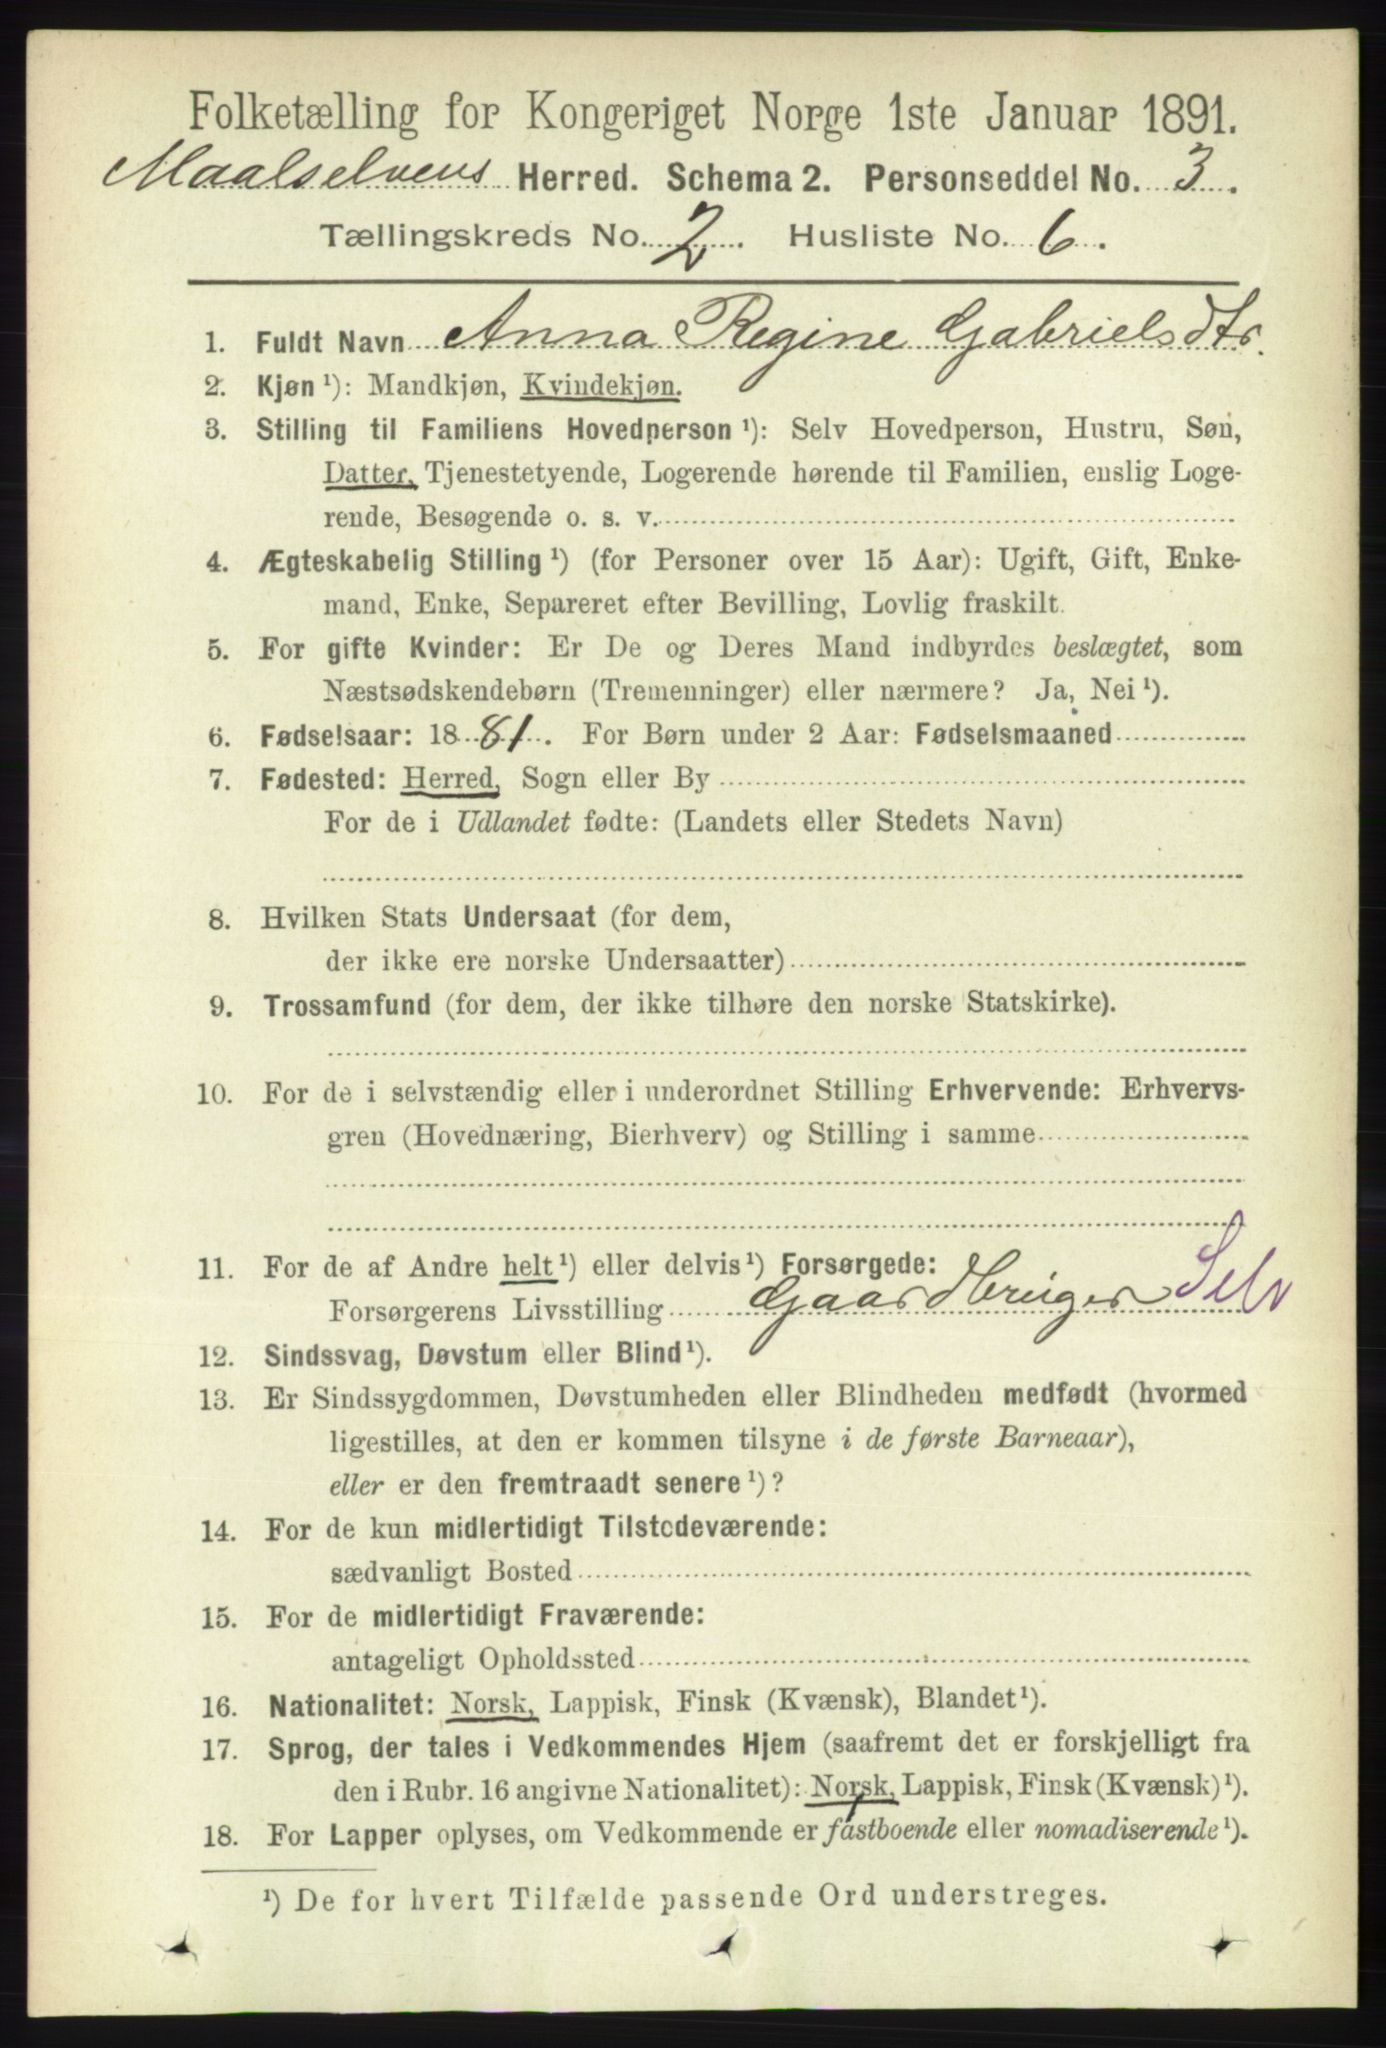 Folketælling for Kongeriget Norge 1ste Januar 1891.
Maalselvens Herred. Schema 2. Personseddel No. 3.
Tællingskreds No. 2. Husliste No. 6.
1. Fuldt Navn Anna Regine Gabrielsdtr.
2. Kjøn ¹): Mandkjøn, Kvindekjøn.
3. Stilling til Familiens Hovedperson ¹): Selv Hovedperson, Hustru, Søn,
Datter, Tjenestetyende, Logerende hørende til Familien, enslig Loge-
rende, Besøgende o. s. v.
4. Ægteskabelig Stilling ¹) (for Personer over 15 Aar): Ugift, Gift, Enke-
mand, Enke, Separeret efter Bevilling, Lovlig fraskilt.
5. For gifte Kvinder: Er De og Deres Mand indbyrdes beslægtet, som
Næstsødskendebørn (Tremenninger) eller nærmere? Ja, Nei ¹).
6. Fødselsaar: 1881. For Børn under 2 Aar: Fødselsmaaned
7. Fødested: Herred, Sogn eller By
For de i Udlandet fødte: (Landets eller Stedets Navn)
8. Hvilken Stats Undersaat (for dem,
der ikke ere norske Undersaatter)
9. Trossamfund (for dem, der ikke tilhøre den norske Statskirke).
10. For de i selvstændig eller i underordnet Stilling Erhvervende: Erhvervs-
gren (Hovednæring, Bierhverv) og Stilling i samme
11. For de af Andre helt ¹) eller delvis ¹) Forsørgede:
Forsørgerens Livsstilling Gaardbruger Selv
12. Sindssvag, Døvstum eller Blind ¹).
13. Er Sindssygdommen, Døvstumheden eller Blindheden medfødt (hvormed
ligestilles, at den er kommen tilsyne i de første Barneaar),
eller er den fremtraadt senere ¹)?
14. For de kun midlertidigt Tilstedeværende:
sædvanligt Bosted
15. For de midlertidigt Fraværende:
antageligt Opholdssted
16. Nationalitet: Norsk, Lappisk, Finsk (Kvænsk), Blandet ¹).
17. Sprog, der tales i Vedkommendes Hjem (saafremt det er forskjelligt fra
den i Rubr. 16 angivne Nationalitet): Norsk, Lappisk, Finsk (Kvænsk) ¹).
18. For Lapper oplyses, om Vedkommende er fastboende eller nomadiserende ¹).
¹) De for hvert Tilfælde passende Ord understreges.